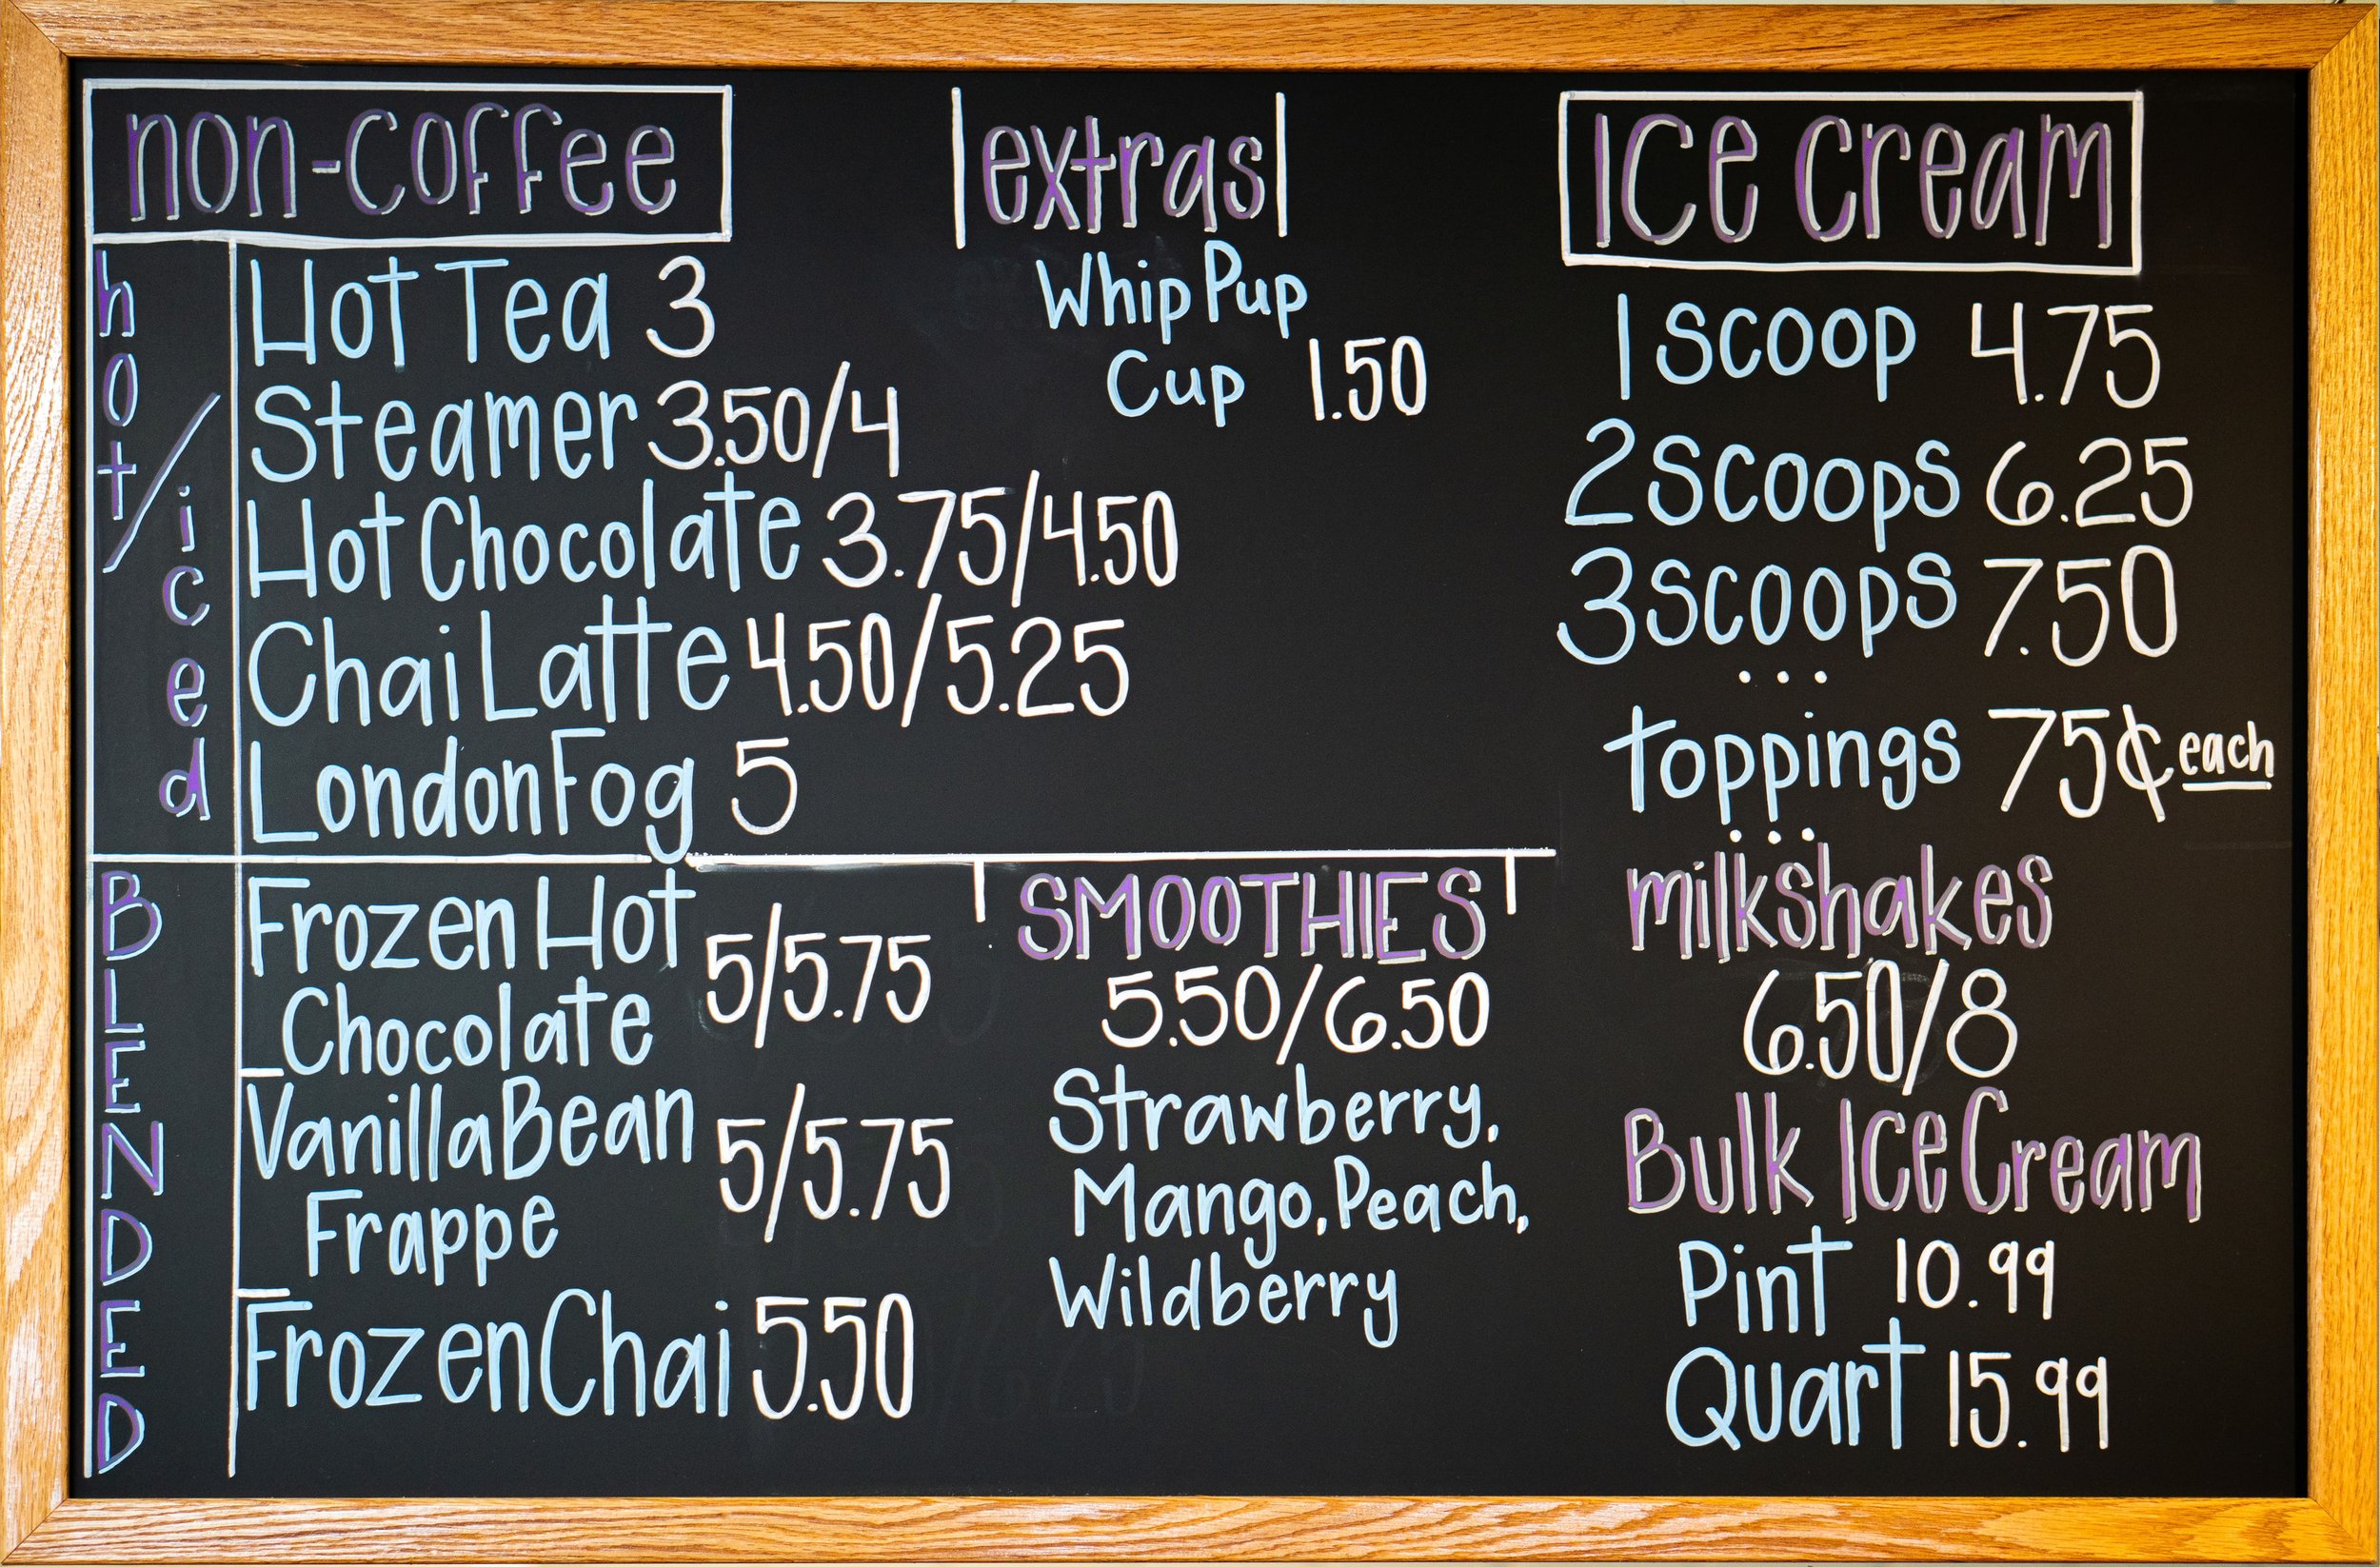 non-coffee
hot/iced
Hot Tea 3
Steamer 3.50/4
Hot Chocolate 3.75/4.50
Chai Latte 4.50/5.25
London Fog 5
BLENDED
Frozen Hot
Chocolate 5/5.75
Vanilla Bean
Frappe 5/5.75
Frozen Chai 5.50
extras
Whip Pup
Cup 1.50
SMOOTHIES
5.50/6.50
Strawberry,
Mango, Peach,
Wildberry
Ice Cream
1 scoop 4.75
2 scoops 6.25
3 scoops 7.50
...
toppings 75¢ each
...
milkshakes
6.50/8
Bulk Ice Cream
Pint 10.99
Quart 15.99